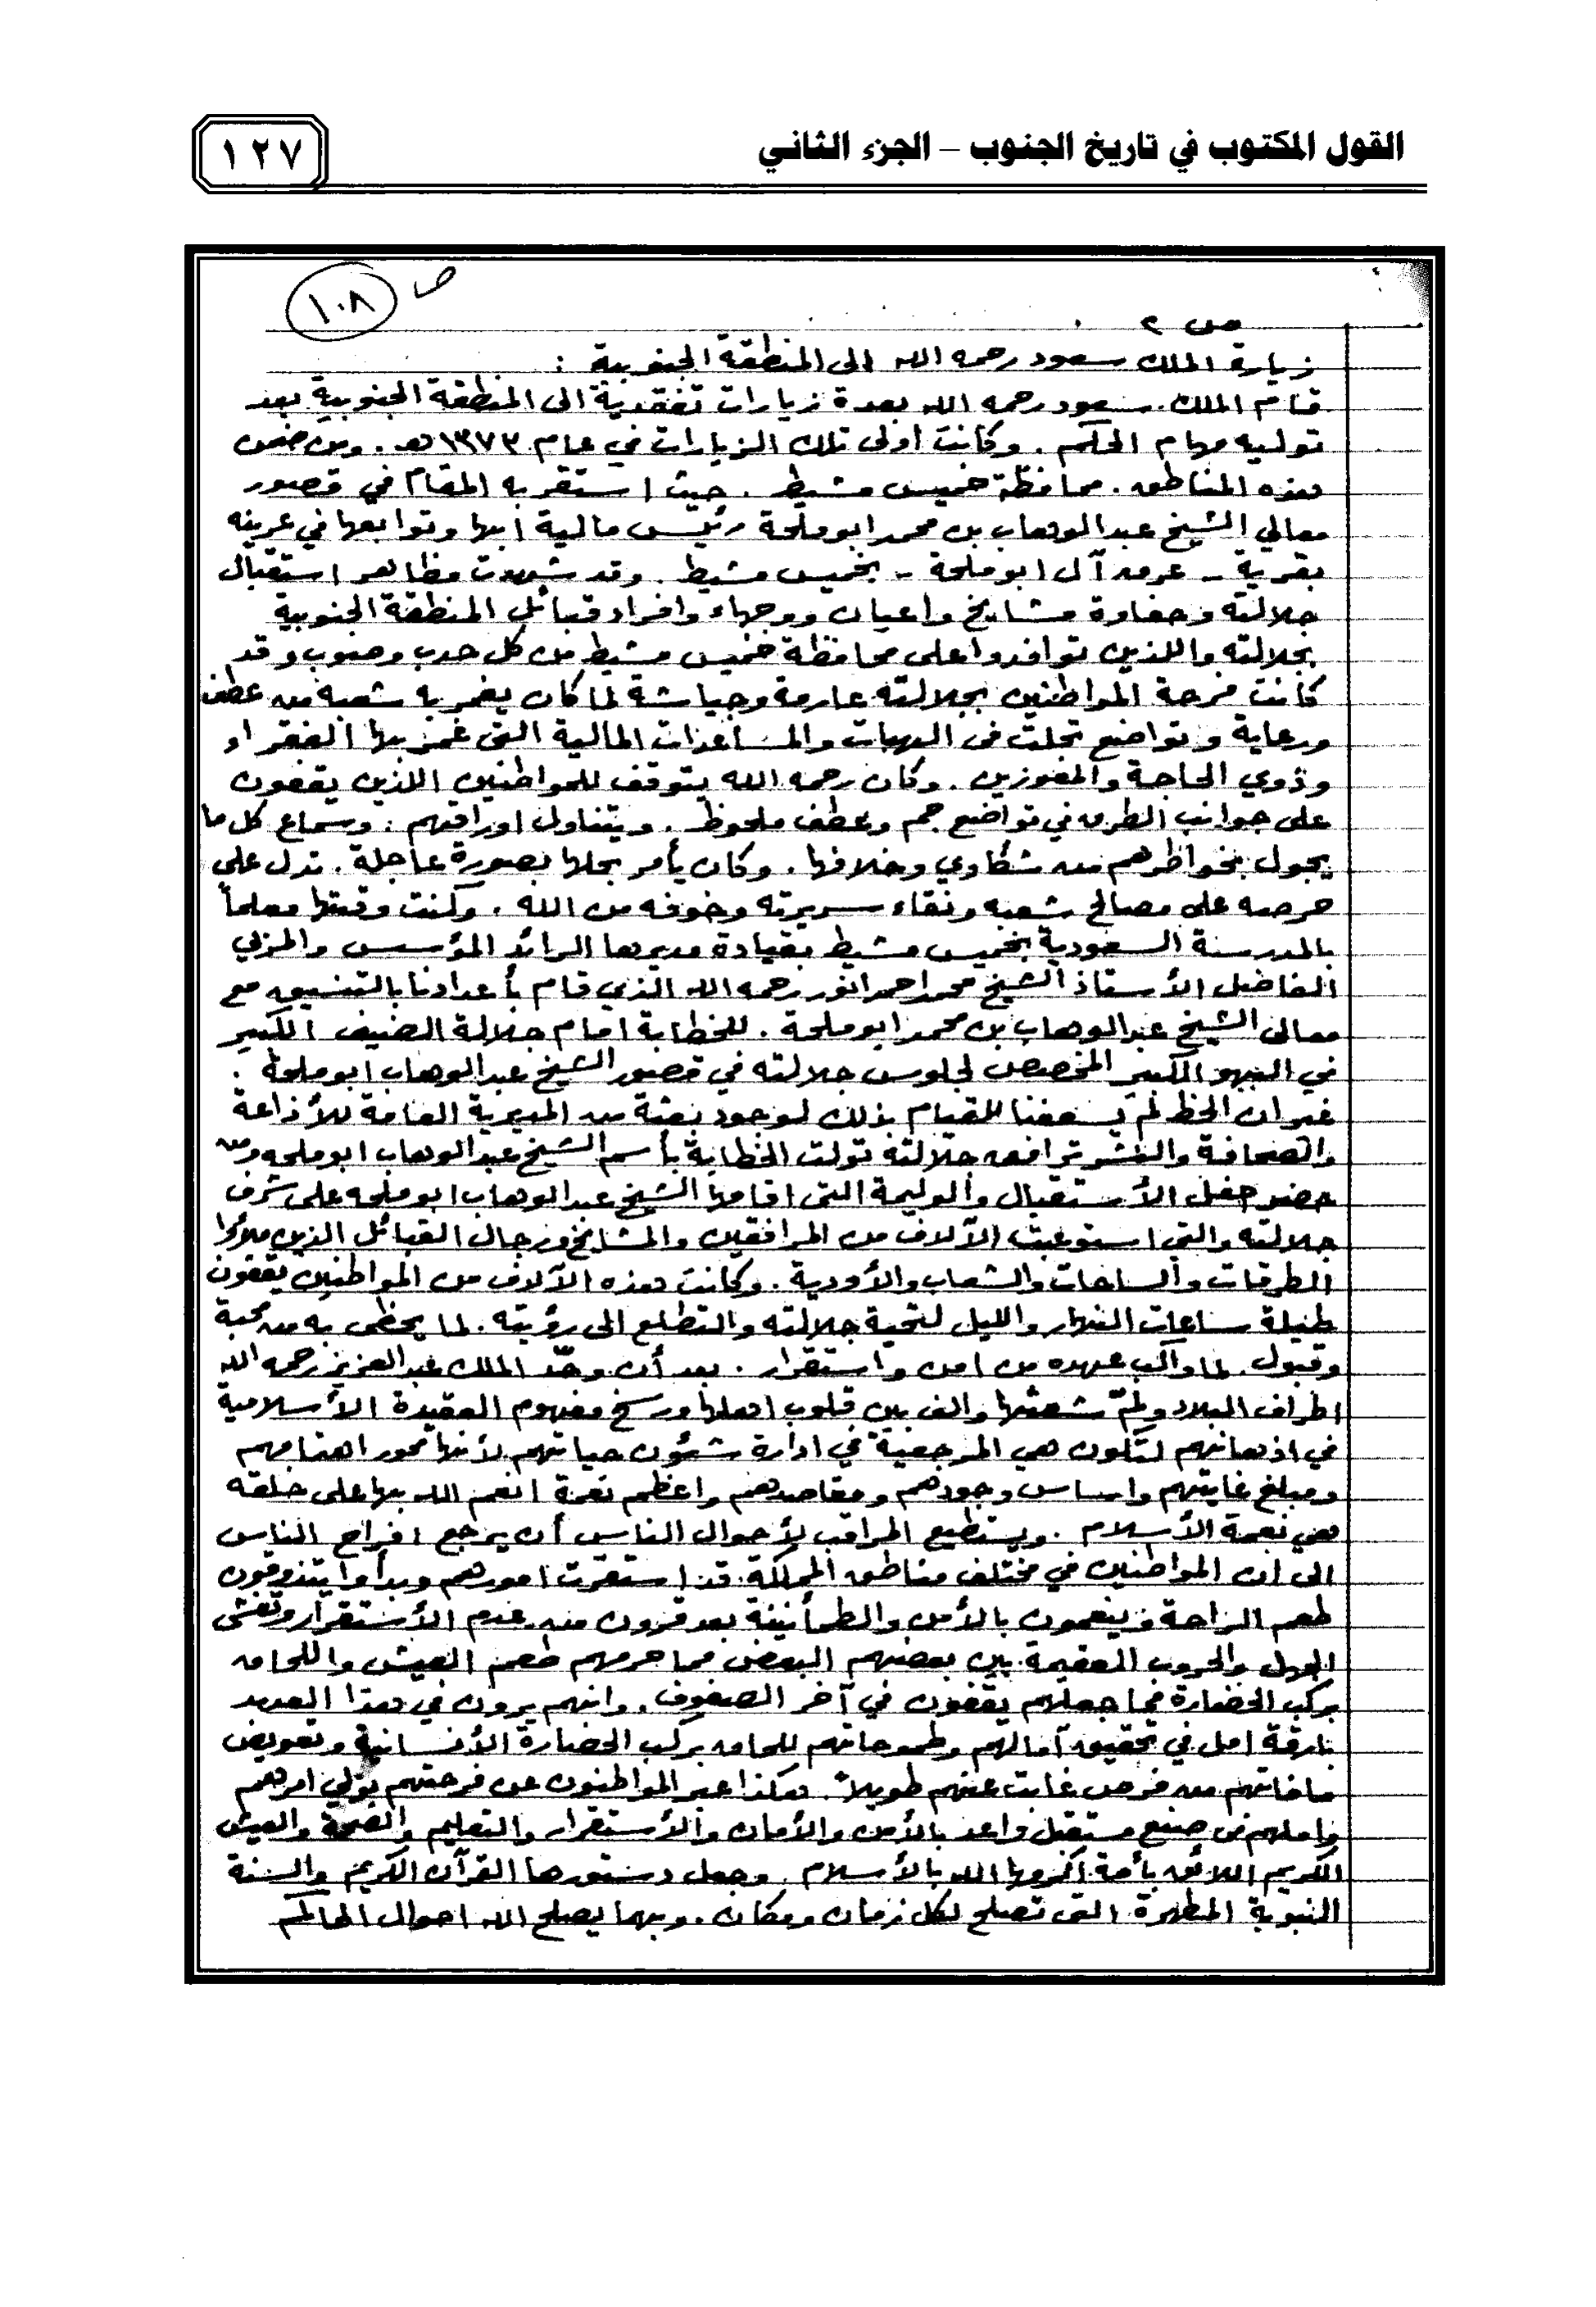 القول المكتوب في تاريخ الجنوب – الجزء الثاني
١٢٧
ص ١٠٨
ص ٢
زيارة الملك سعود رحمه الله الى المنطقة الجنوبية :
قام الملك سعود رحمه الله بعدة زيارات تفقدية الى المنطقة الجنوبية بعد
توليه مهام الحكم . وكانت اولى تلك الزيارات في عام ١٣٧٣هـ . ومن ضمن
هذه المناطق . محافظة خميس مشيط . حيث استقر به المقام في قصور
معالي الشيخ عبدالوهاب بن محمد ابوملحة رئيس مالية ابها وتوابعها في عرينه
بقرية - عرق آل ابوملحة - بخميس مشيط . وقد شهدت مظاهر استقبال
جلالته وحفاوة مشايخ واعيان ووجهاء وافراد قبائل المنطقة الجنوبية
بجلالته واللذين توافدوا على محافظة خميس مشيط من كل حدب وصوب وقد
كانت فرحة المواطنين بجلالته عارمة وجياشة لما كان يغمر به شعبه من عطف
ورعاية وتواضع تجلت في الهبات والمساعدات المالية التي غمر بها الفقراء
وذوي الحاجة والمعوزين . وكان رحمه الله يتوقف للمواطنين اللذين يقفون
على جوانب الطرق في تواضع جم وعطف ملحوظ . ويتناول اوراقهم . وسماع كل ما
يجول بخواطرهم من شكاوي وخلافها . وكان يأمر بحلها بصورة عاجلة . تدل على
حرصه على مصالح شعبه ونقاء سريرته وخوفه من الله . وكنت وقتها معلماً
بالمدرسة السعودية بخميس مشيط بقيادة مديرها الرائد المؤسس والمربي
الفاضل الأستاذ الشيخ محمد احمد انور رحمه الله الذي قام بأعدادنا بالتنسيق مع
معالى الشيخ عبدالوهاب بن محمد ابوملحة . للخطابة امام جلالة الضيف الكبير
في البهو الكبير المخصص لجلوس جلالته في قصور الشيخ عبدالوهاب ابوملحة .
غير ان الحظ لم يسعفنا للقيام بذلك لوجود بعثة من المديرية العامة للأذاعة
والصحافة والنشر ترافق جلالته تولت الخطابة بأسم الشيخ عبدالوهاب ابوملحه ومن
حضر حفل الأستقبال والوليمة التي اقامها الشيخ عبدالوهاب ابوملحه على شرف
جلالته والتي استوعبت الآلاف من المرافقين والمشايخ ورجال القبائل الذين ملأوا
الطرقات والساحات والشعاب والأودية . وكانت هذه الآلاف من المواطنين يقفون
طيلة ساعات النهار والليل لتحية جلالته والتطلع الى رؤيته . لما يحظى به من محبة
وقبول . لما واكب عهده من امن واستقرار . بعد أن وحّد الملك عبدالعزيز رحمه الله
اطراف البلاد ولمّ شعثها والف بين قلوب اهلها ورسخ مفهوم العقيدة الأسلامية
في اذهانهم لتكون هي المرجعية في ادارة شئون حياتهم لأنها محور اهتمامهم
ومبلغ غايتهم واساس وجودهم ومقاصدهم واعظم نعمة انعم الله بها على خلقه
هي نعمة الأسلام . ويستطيع المراقب لأحوال الناس أن يرجع افراح الناس
الى ان المواطنين في مختلف مناطق المملكة قد استقرت امورهم وبدأوا يتذوقون
طعم الراحة وينعمون بالأمن والطمأنينة بعد قرون من عدم الأستقرار وتفشي
الجهل والحروب العقيمة بين بعضهم البعض مما حرمهم طعم العيش واللحاق
بركب الحضارة مما جعلهم يقفون في آخر الصفوف . وانهم يرون في هذا العهد
بارقة امل في تحقيق آمالهم وطموحاتهم للحاق بركب الحضارة الأنسانية وتعويض
مافاتهم من فرص غابت عنهم طويلاً . هكذا عبر المواطنون عن فرحتهم بولي امرهم
واملهم في صنع مستقبل واعد بالأمن والأمان والأستقرار والتعليم والصحة والعيش
الكريم اللائق بأمة اكرمها الله بالأسلام . وجعل دستورها القرآن الكريم والسنة
النبوية المطهرة التي تصلح لكل زمان ومكان . وبهما يصلح الله احوال الحاكم